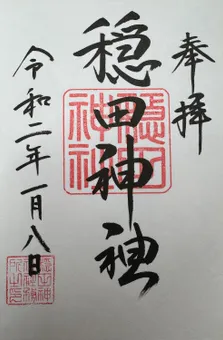 奉拝
穏田神社
穏田神社
令和二年一月八日